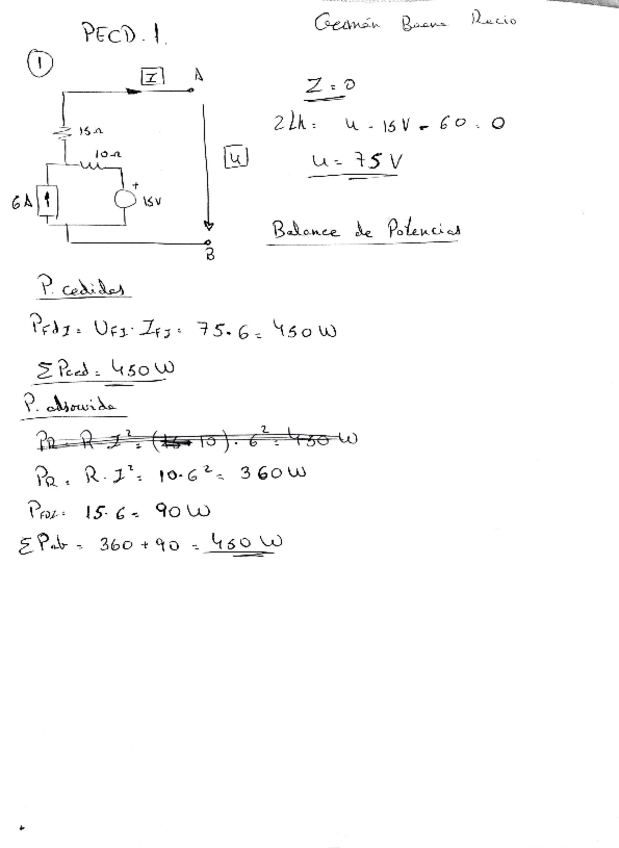 PECD.1.
Germán Baena Recio
①
I
A
15Ω
10Ω
6A
+
15V
U
B
I = 0
2LK: U - 15V - 60 = 0
U = 75V
Balance de Potencias
P. cedidas
PFdI = UFI · IFI = 75·6 = 450W
ΣPced = 450W
P. absorvida
PR = R·I² = 10·6² = 360W
PFDV = 15·6 = 90W
ΣPab = 360 + 90 = 450W